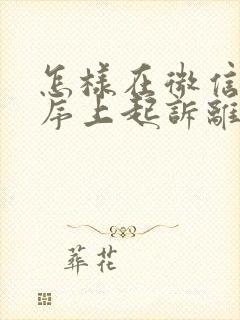 怎樣在微信
序上起訴離
葬花